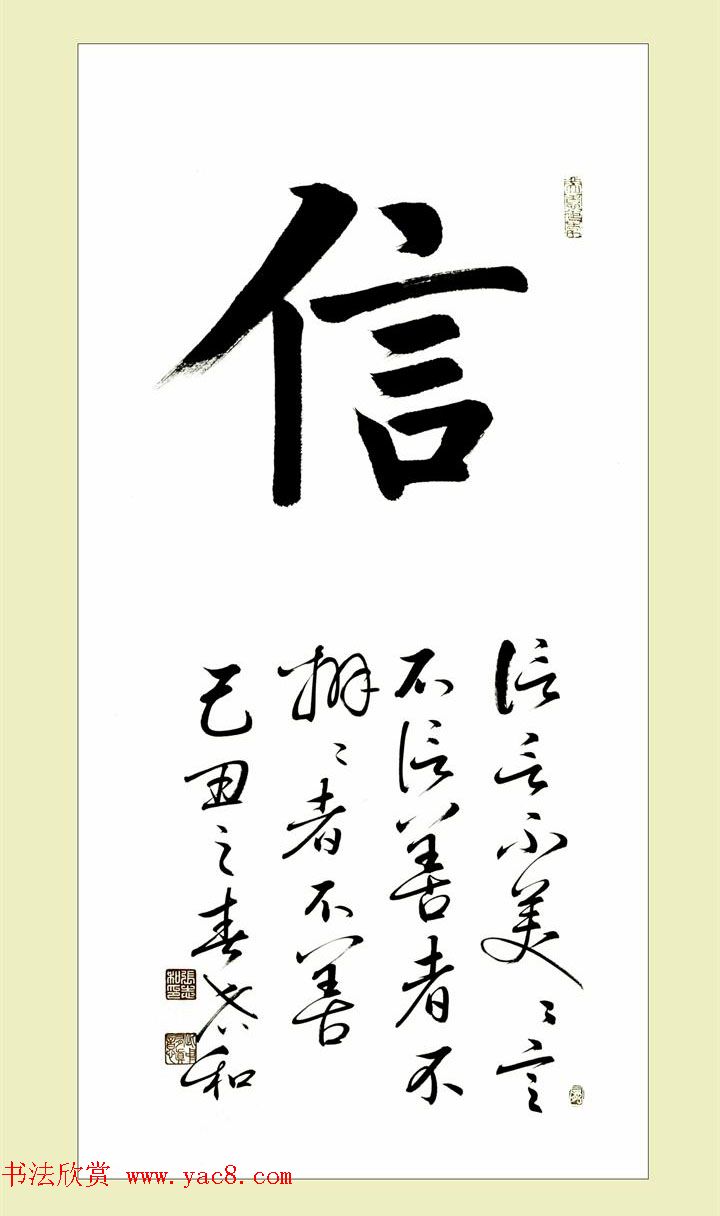 信
信言不美〻言
不信善者不
辯〻者不善
己丑之春志和
張志和印
书法欣赏 www.yac8.com